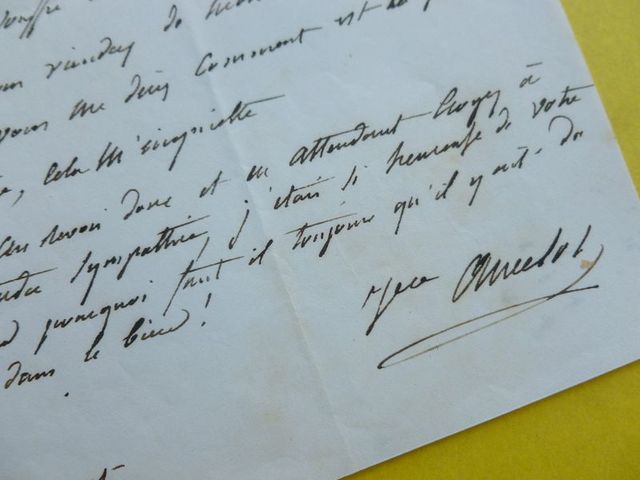 vous viendrez de
vous me direz comment est
, cela m'inquiette
Au revoir donc et en attendant croyez à
sympathie, j'étais si heureuse de votre
pourquoi faut il toujours qu'il y ait du
dans le bien !
Ancelot